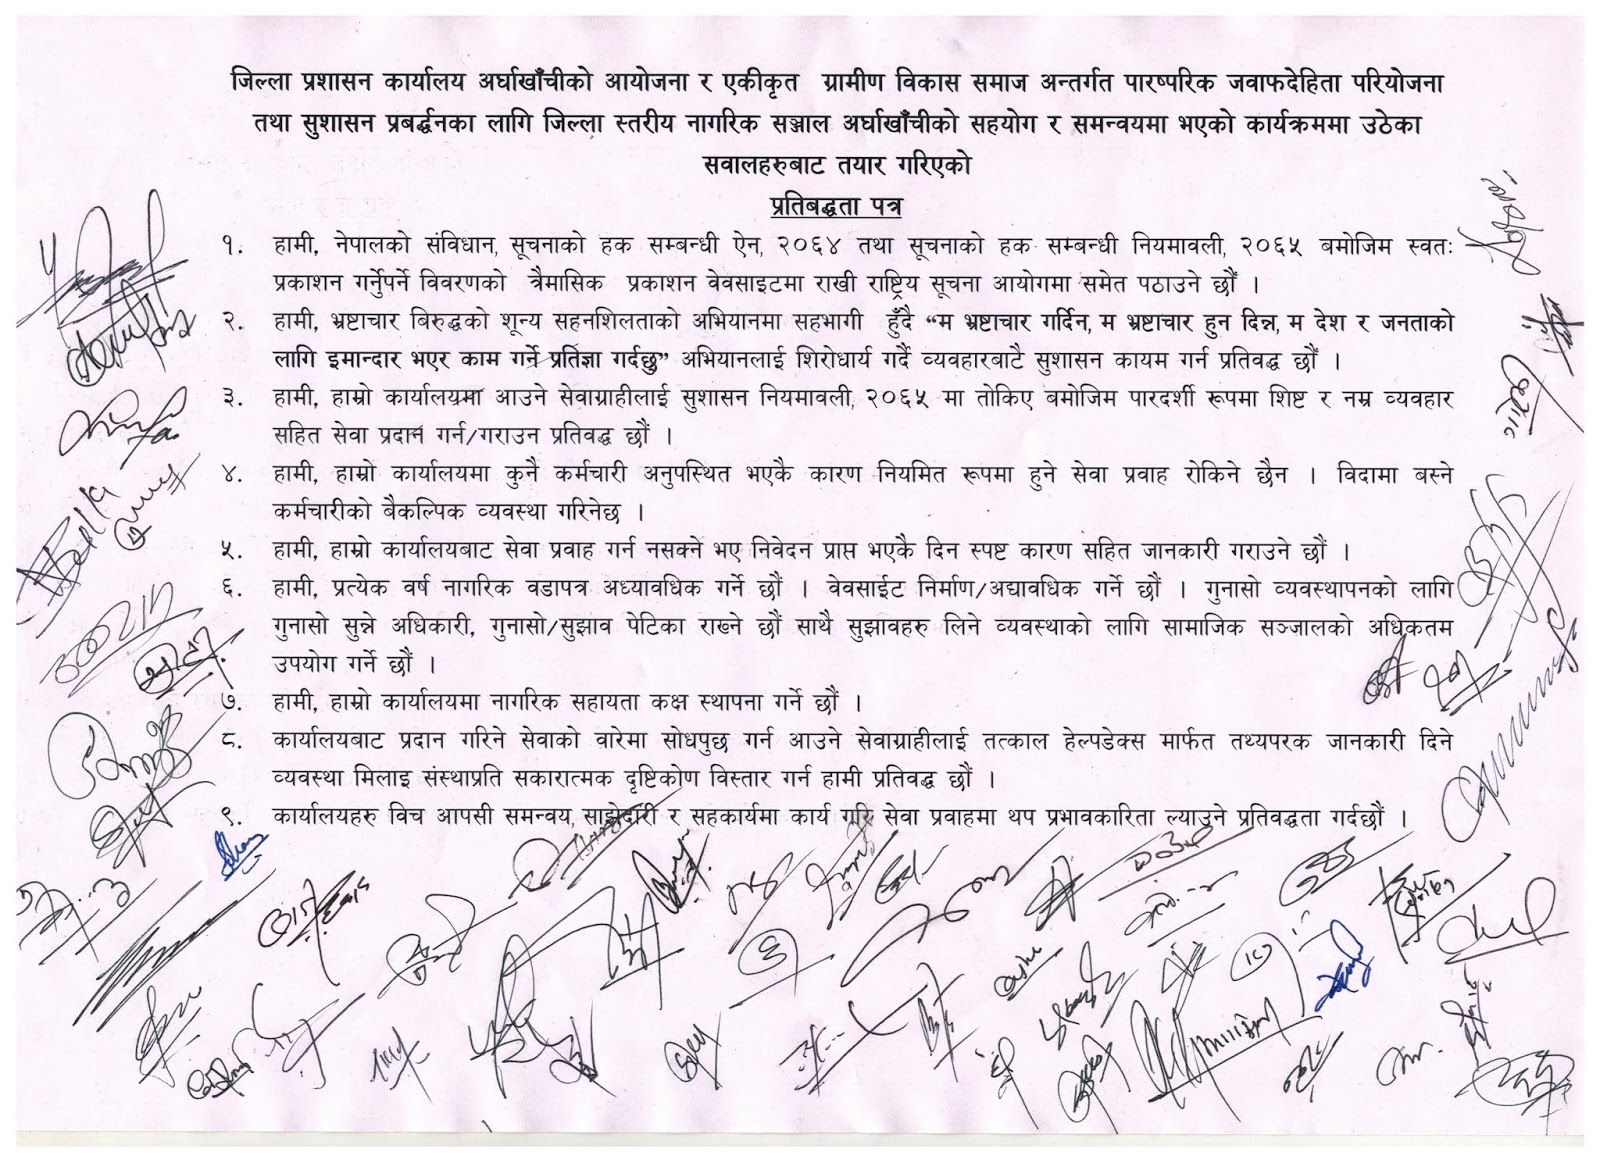 जिल्ला प्रशासन कार्यालय अर्घाखाँचीको आयोजना र एकीकृत ग्रामीण विकास समाज अन्तर्गत पारष्परिक जवाफदेहिता परियोजना
तथा सुशासन प्रबर्द्धनका लागि जिल्ला स्तरीय नागरिक सञ्जाल अर्घाखाँचीको सहयोग र समन्वयमा भएको कार्यक्रममा उठेका
सवालहरुबाट तयार गरिएको
प्रतिबद्धता पत्र
१. हामी, नेपालको संविधान, सूचनाको हक सम्बन्धी ऐन, २०६४ तथा सूचनाको हक सम्बन्धी नियमावली, २०६५ बमोजिम स्वतः
प्रकाशन गर्नुेपर्ने विवरणको त्रैमासिक प्रकाशन वेवसाइटमा राखी राष्ट्रिय सूचना आयोगमा समेत पठाउने छौं ।
२. हामी, भ्रष्टाचार विरुद्धको शून्य सहनशिलताको अभियानमा सहभागी हुँदै “म भ्रष्टाचार गर्दिन, म भ्रष्टाचार हुन दिन्न, म देश र जनताको
लागि इमान्दार भएर काम गर्ने प्रतिज्ञा गर्दछु” अभियानलाई शिरोधार्य गर्दै व्यवहारबाटै सुशासन कायम गर्न प्रतिवद्ध छौं ।
३. हामी, हाम्रो कार्यालयमा आउने सेवाग्राहीलाई सुशासन नियमावली, २०६५ मा तोकिए बमोजिम पारदर्शी रूपमा शिष्ट र नम्र व्यवहार
सहित सेवा प्रदान गर्न/गराउन प्रतिवद्ध छौं ।
४. हामी, हाम्रो कार्यालयमा कुनै कर्मचारी अनुपस्थित भएकै कारण नियमित रूपमा हुने सेवा प्रवाह रोकिने छैन । विदामा बस्ने
कर्मचारीको बैकल्पिक व्यवस्था गरिनेछ ।
५. हामी, हाम्रो कार्यालयबाट सेवा प्रवाह गर्न नसक्ने भए निवेदन प्राप्त भएकै दिन स्पष्ट कारण सहित जानकारी गराउने छौं ।
६. हामी, प्रत्येक वर्ष नागरिक वडापत्र अध्यावधिक गर्ने छौं । वेवसाईट निर्माण/अद्यावधिक गर्ने छौं । गुनासो व्यवस्थापनको लागि
गुनासो सुन्ने अधिकारी, गुनासो/सुझाव पेटिका राख्ने छौं साथै सुझावहरु लिने व्यवस्थाको लागि सामाजिक सञ्जालको अधिकतम
उपयोग गर्ने छौं ।
७. हामी, हाम्रो कार्यालयमा नागरिक सहायता कक्ष स्थापना गर्ने छौं ।
८. कार्यालयबाट प्रदान गरिने सेवाको वारेमा सोधपुछ गर्न आउने सेवाग्राहीलाई तत्काल हेल्पडेक्स मार्फत तथ्यपरक जानकारी दिने
व्यवस्था मिलाइ संस्थाप्रति सकारात्मक दृष्टिकोण विस्तार गर्न हामी प्रतिवद्ध छौं ।
९. कार्यालयहरु विच आपसी समन्वय, साझेदारी र सहकार्यमा कार्य गरि सेवा प्रवाहमा थप प्रभावकारिता ल्याउने प्रतिवद्धता गर्दछौं ।